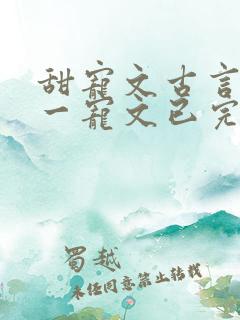 甜宠文古言
一宠文已完
蜀越
未经同意禁止转载